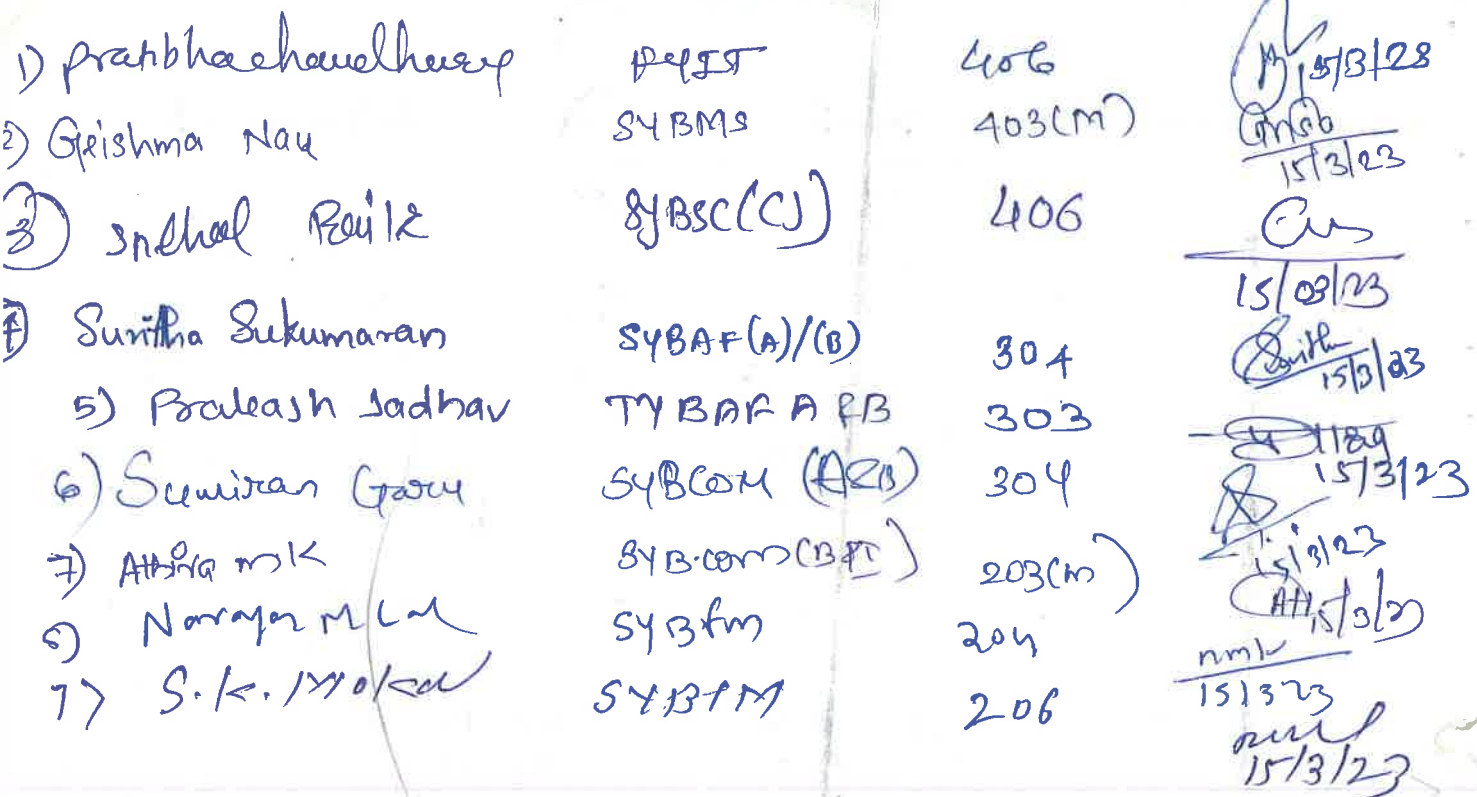 1) Pratibha Chaudhury 406 15/3/23
2) Greishma Nair SYBMS 403(M) 15/3/23
3) Snehal Raik SYBSC(CS) 406 15/03/23
4) Sunitha Sukumaran SYBAF(A)/(B) 304 Sunitha 15/3/23
5) Prakash Jadhav TYBAF A & B 303 15/3/23
6) Sumiran Garu SYBCOM (A&B) 304 15/3/23
7) Athira MK SYB.com (B&I) 203(m) Ath 15/3/23
8) Narayan M Lal SYBfm 204 nmk 15/3/23
9) S.K. SYBFM 206 15/3/23